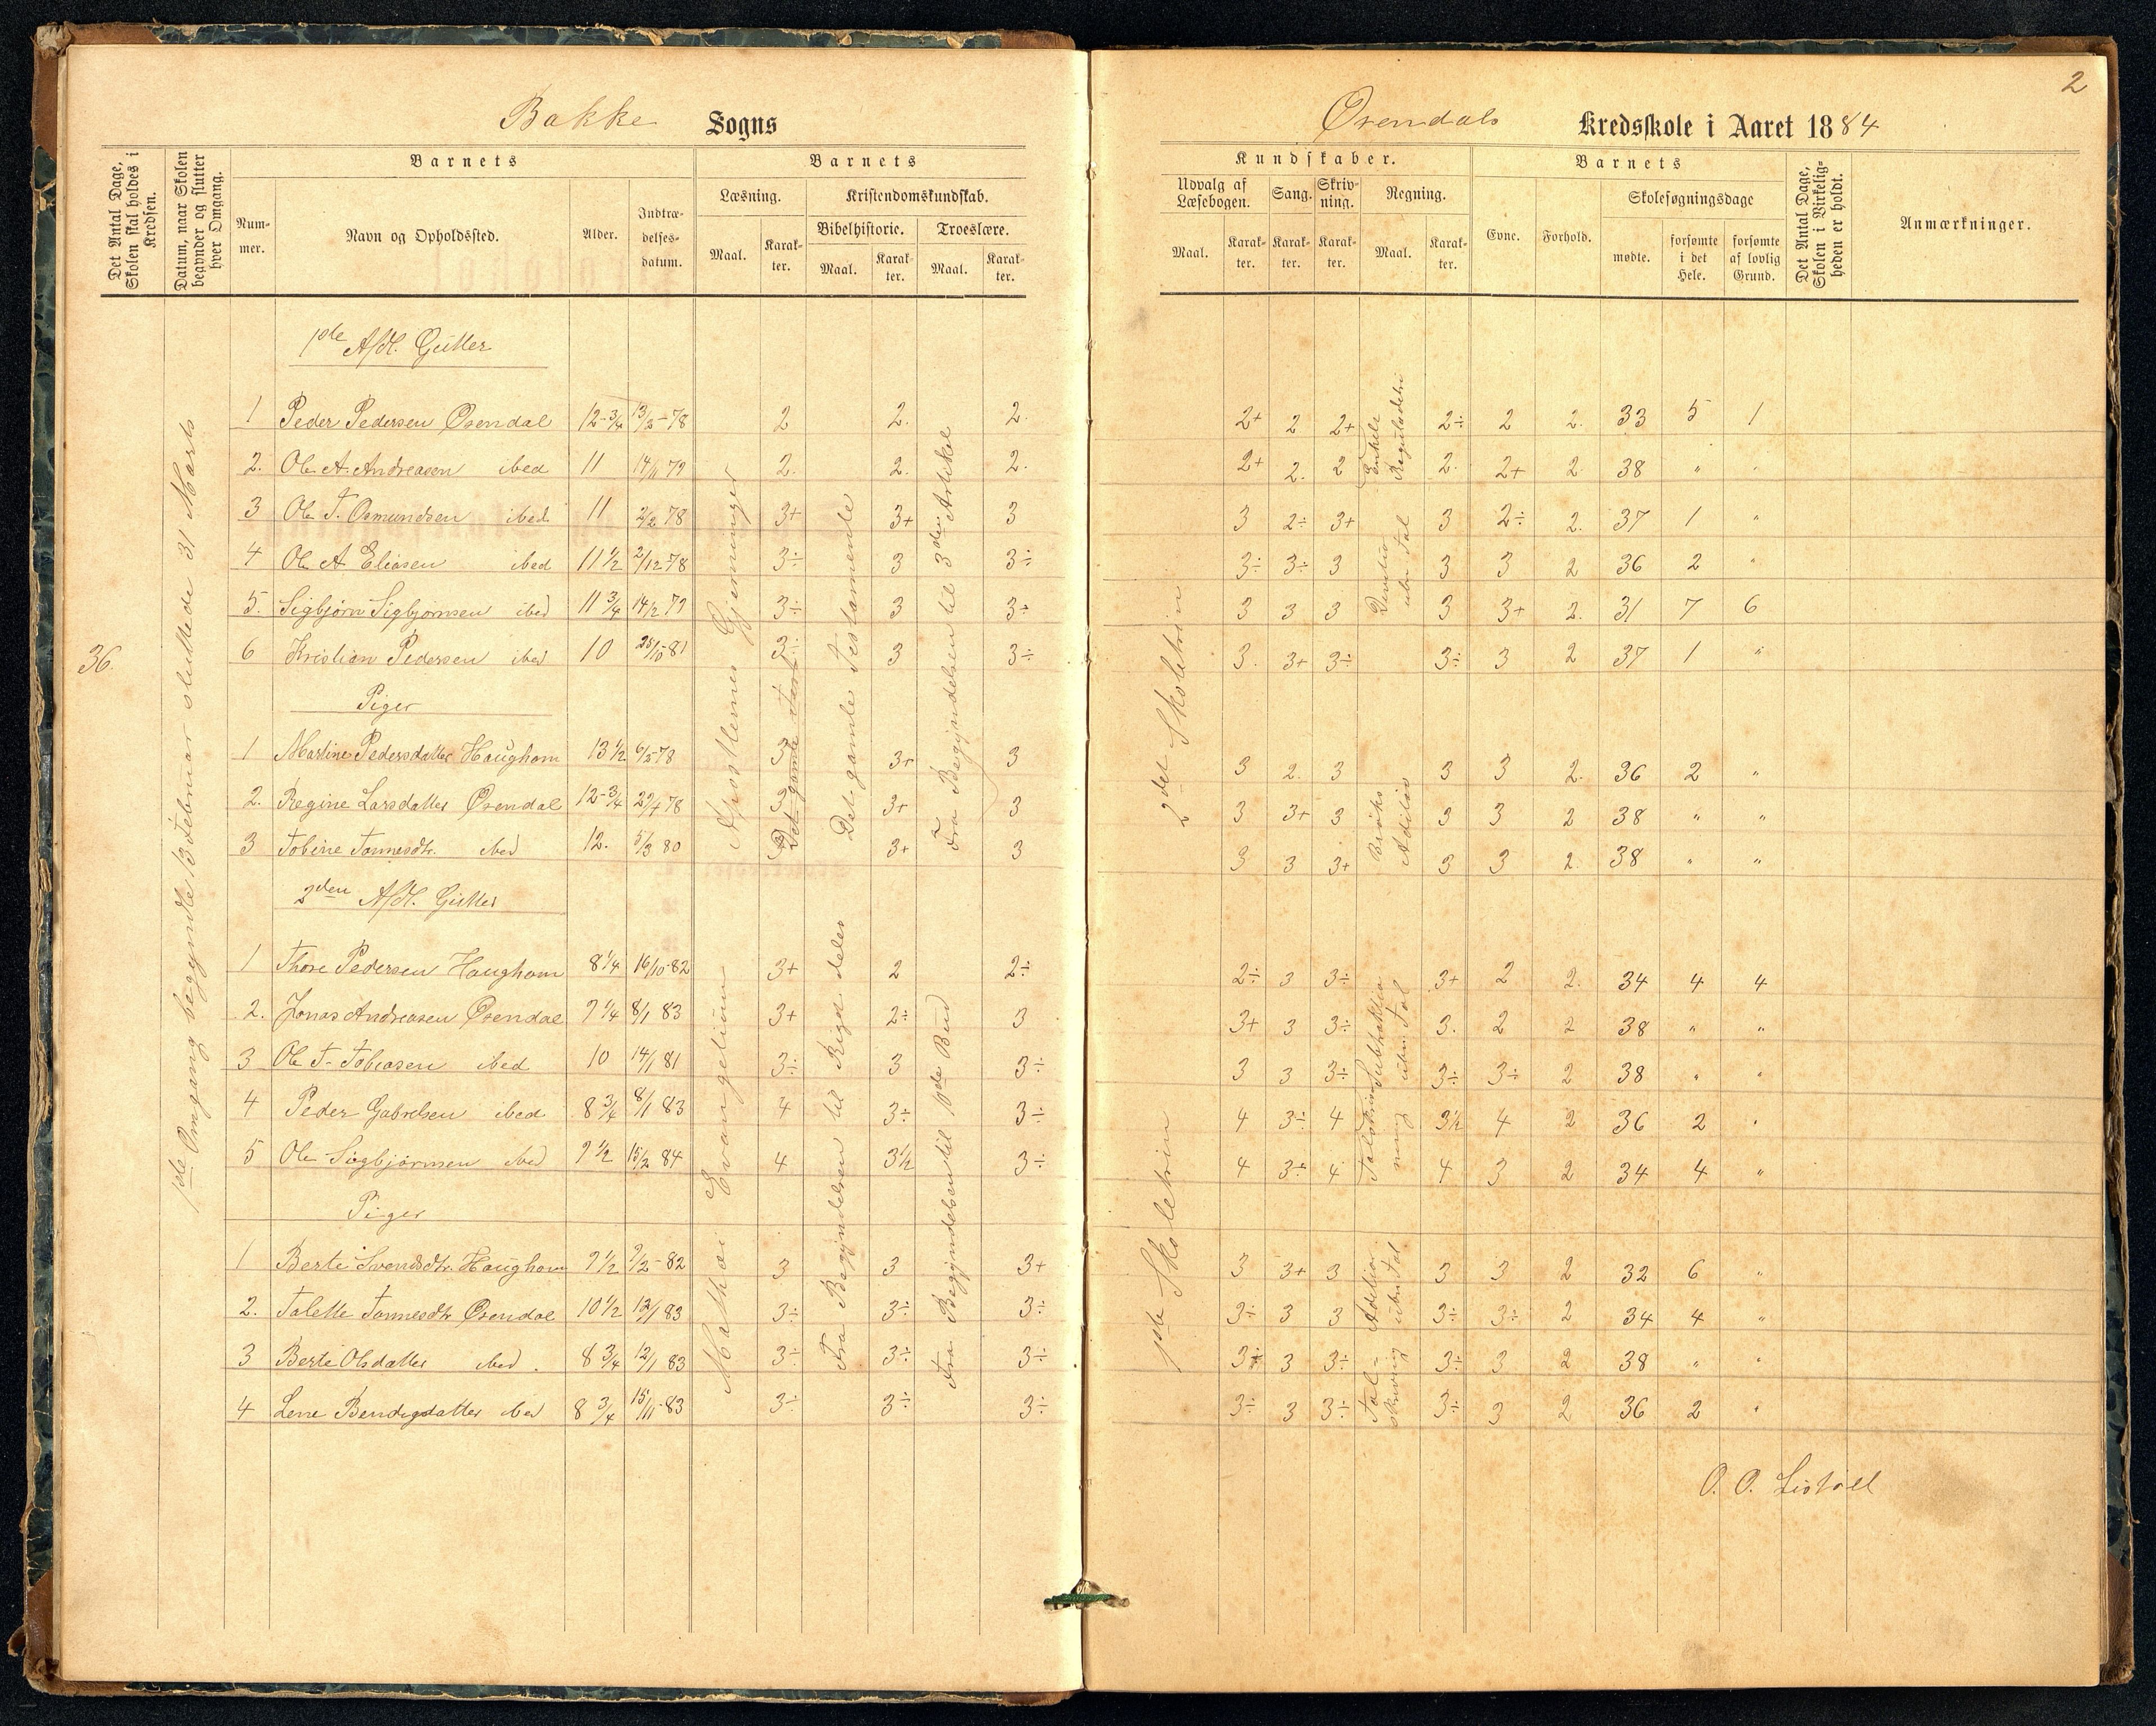 2
Bakke Sogns
Øsendals Kredsskole i Aaret 1884
Det Antal Dage, Skolen skal holdes i Kredsen.
Datum, naar Skolen begynder og slutter hver Omgang.
Barnets
Nummer.
Navn og Opholdssted.
Alder.
Indtrædelses-datum.
Barnets
Læsning.
Maal.
Karakter.
Kristendomskundskab.
Bibelhistorie.
Maal.
Karakter.
Troeslære.
Maal.
Karakter.
Kundskaber.
Udvalg af Læsebogen.
Maal.
Karakter.
Sang.
Karakter.
Skrivning.
Karakter.
Regning.
Maal.
Karakter.
Barnets
Evne.
Forhold.
Skolesøgningsdage
mødte.
forsømte i det Hele.
forsømte af lovlig Grund.
Det Antal Dage, Skolen i Virkeligheden er holdt.
Anmærkninger.
36.
1ste Omgang begyndte 13 Februar sluttede 31 Marts
Apostlenes Gjerninger
Det gamle Testamente
Fra Begyndelsen til 3den Artikel
2det Skoletrin
Enkele Reguladetri
Brøks Adition
1ste Afdl. Gutter
1 Peder Pedersen Øsendal 12-3/4 13/2-78 2 2. 2. 2+ 2 2+ 2÷ 2 2. 33 5 1
2. Ole A. Andreasen ibed 11 14/11 79 2. 2. 2. 2+ 2. 2 2. 2+ 2 38 "
3 Ole T. Osmundsen ibed. 11 2/2 78 3+ 3+ 3 3 2÷ 3+ 3 2÷ 2. 37 1 "
4 Ole A Eliasen ibed 11 1/2 2/12-78 3÷ 3 3÷ 3÷ 3÷ 3 3 3 2 36 2 "
5. Sigbjørn Sigbjørnsen ibed 11 3/4 14/2 79 3÷ 3 3÷ 3 3 3 3 3+ 2. 31 7 6
6 Kristian Pedersen ibed 10 25/10-81 3÷ 3 3÷ 3. 3+ 3÷ 3÷ 3 2 37 1 "
Piger
1 Martine Pedersdatter Haughom 13 1/2 6/2-78 3 3+ 3 3 2. 3 3 3 2. 36 2 "
2. Regine Larsdatter Øsendal 12-3/4 3 3+ 3 3 3+ 3 3 3 2 38 " "
3 Tobine Tønnesdtr. ibed 12. 5/3 80 3+ 3 3 3 3+ 3 3 2. 38 " "
Matthæi Evangelium
Fra Begyndelsen til Rigd deles
Fra Begyndelsen til 10de Bud
1ste Skoletrin
Subtraktion ubn. Tal
Adition ubn Tal
Talskrivning
2den Afdl. Gutter
1 Thore Pedersen Haughom 8 1/4 16/10-82 3+ 2 2÷ 2÷ 3 3÷ 3+ 2 2. 34 4 4
2. Jonas Andreasen Øsendal 9 1/4 8/1 83 3+ 2÷ 3 3+ 3 3÷ 3. 2 2 38 " "
3 Ole T. Tobiasen ibed 10 14/1 81 3÷ 3 3÷ 3 3 3÷ 3÷ 3÷ 2 38 " "
4 Peder Gabrielsen ibed 8 3/4 8/1 83 4 3÷ 3÷ 4 3÷ 4 3 1/2 4 2 36 2 "
5 Ole Sigbjørnsen ibed 9 1/2 15/2 84 4 3 1/2 3÷ 4 3÷ 4 4 3 2 34 4 "
Piger
1 Berte Svendsdtr. Haughom 9 1/2 9/2-82 3 3 3+ 3 3+ 3 3 3 2 32 6 "
2. Talette Tønnesdtr Øsendal 10 1/2 12/1 83 3÷ 3÷ 3÷ 3÷ 3 3 3÷ 3÷ 2 34 4 "
3 Berte Olsdatter ibed. 8 3/4 12/1 83 3÷ 3÷ 3÷ 3 3÷ 3÷ 3 2 38 " "
4 Lene Bendigsdatter ibed 8 3/4 15/11-83 3÷ 3÷ 3÷ 3÷ 3 3÷ 3÷ 3 2 36 2 "